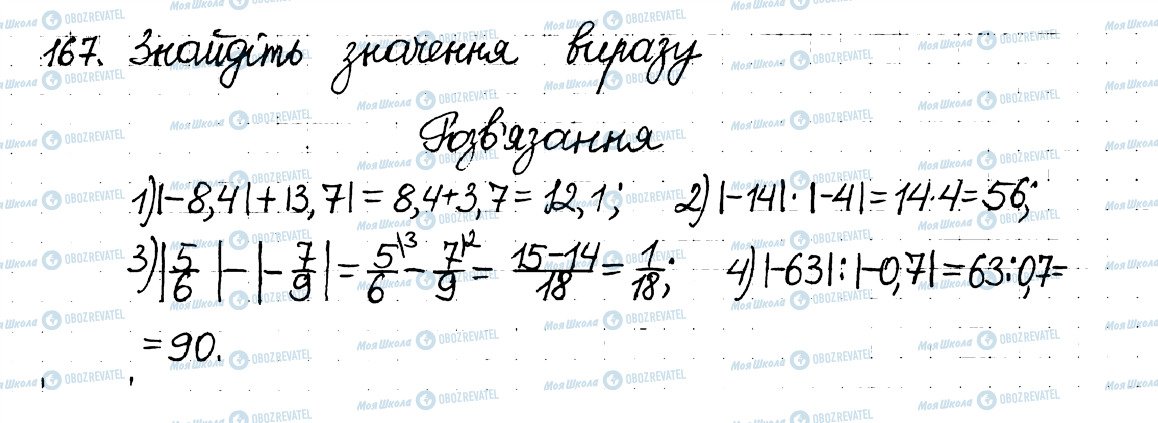 167. Знайдіть значення виразу
Розв'язання
1) |-8,4| + |3,7| = 8,4 + 3,7 = 12,1; 2) |-14| · |-4| = 14 · 4 = 56;
3) |5/6| - |-7/9| = 5/6 |3 - 7/9 |2 = (15-14)/18 = 1/18; 4) |-63| : |-0,7| = 63 : 0,7 =
= 90.
Моя Школа OBOZREVATEL